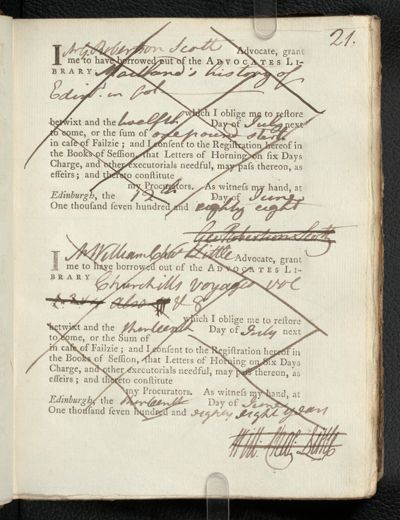 21.
I Mr G. Robertson Scott Advocate, grant
me to have borrowed out of the ADVOCATES LI-
BRARY Maitland's history of
Edinr. in fol
which I oblige me to reſtore
betwixt and the twelfth Day of July next
to come, or the sum of one pound sterl:
in caſe of Failzie ; and I conſent to the Regiſtration hereof in
the Books of Seſſion, that Letters of Horning on ſix Days
Charge, and other executorials needful, may paſs thereon, as
effeirs ; and thereto conſtitute
my Procurators. As witneſs my hand, at
Edinburgh, the 12th Day of June
One thouſand ſeven hundred and eighty eight
Geo Robertson Scott
I Mr William Little Advocate, grant
me to have borrowed out of the ADVOCATES LI-
BRARY Churchills voyages vol
& 8
which I oblige me to reſtore
betwixt and the thirteenth Day of July next
to come, or the Sum of
in caſe of Failzie ; and I conſent to the Regiſtration hereof in
the Books of Seſſion, that Letters of Horning on ſix Days
Charge, and other executorials needful, may paſs thereon, as
effeirs ; and thereto conſtitute
my Procurators. As witneſs my hand, at
Edinburgh, the thirteenth Day of June
One thouſand ſeven hundred and eighty eight years
Will: Little